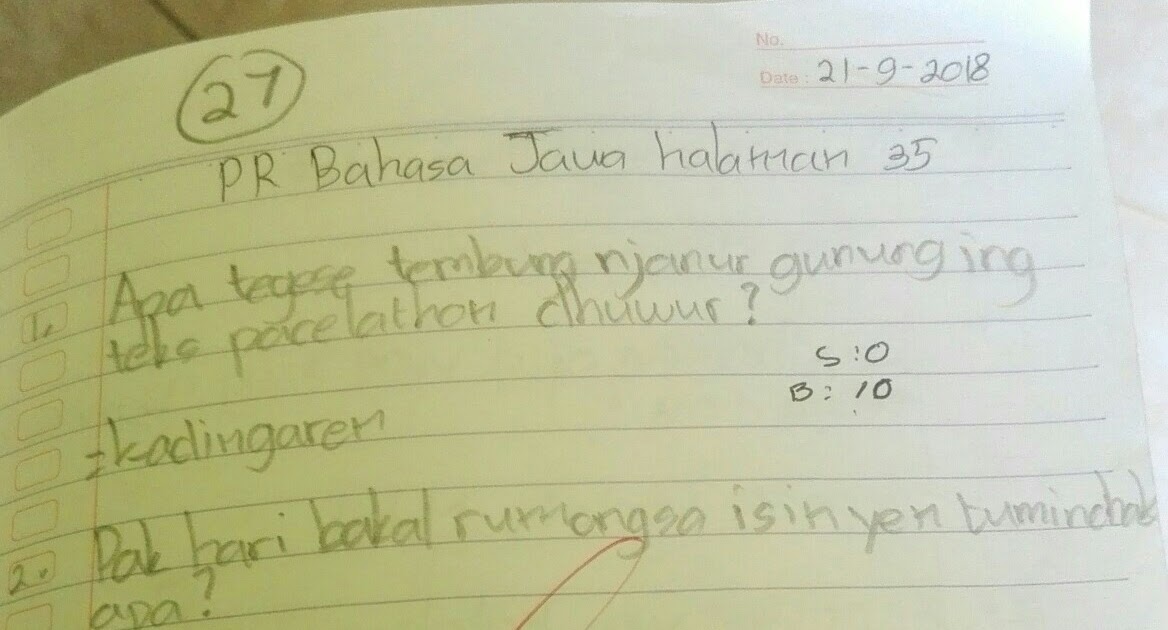 27
No.
Date: 21-9-2018
PR Bahasa Jawa halaman 35
1. Apa tegese tembung njanur gunung ing
teks pacelathon dhuwur?
S:0
B: 10
= kadingaren
2. Pak hari bakal rumongso isin yen tumindhak
apa?